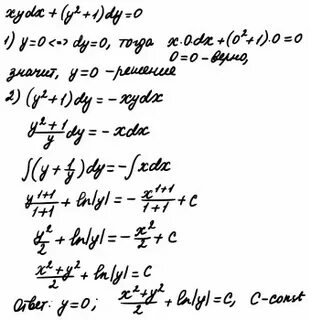 xydx + (y²+1)dy = 0
1) y=0 <=> dy=0, тогда x·0·dx + (0²+1)·0 = 0
0=0 - верно,
значит, y=0 - решение
2) (y²+1)dy = -xydx
\frac{y²+1}{y} dy = -xdx
∫(y + \frac{1}{y})dy = -∫xdx
\frac{y^{1+1}}{1+1} + ln|y| = -\frac{x^{1+1}}{1+1} + C
\frac{y²}{2} + ln|y| = -\frac{x²}{2} + C
\frac{x²+y²}{2} + ln|y| = C
Ответ: y=0; \frac{x²+y²}{2} + ln|y| = C, C-const